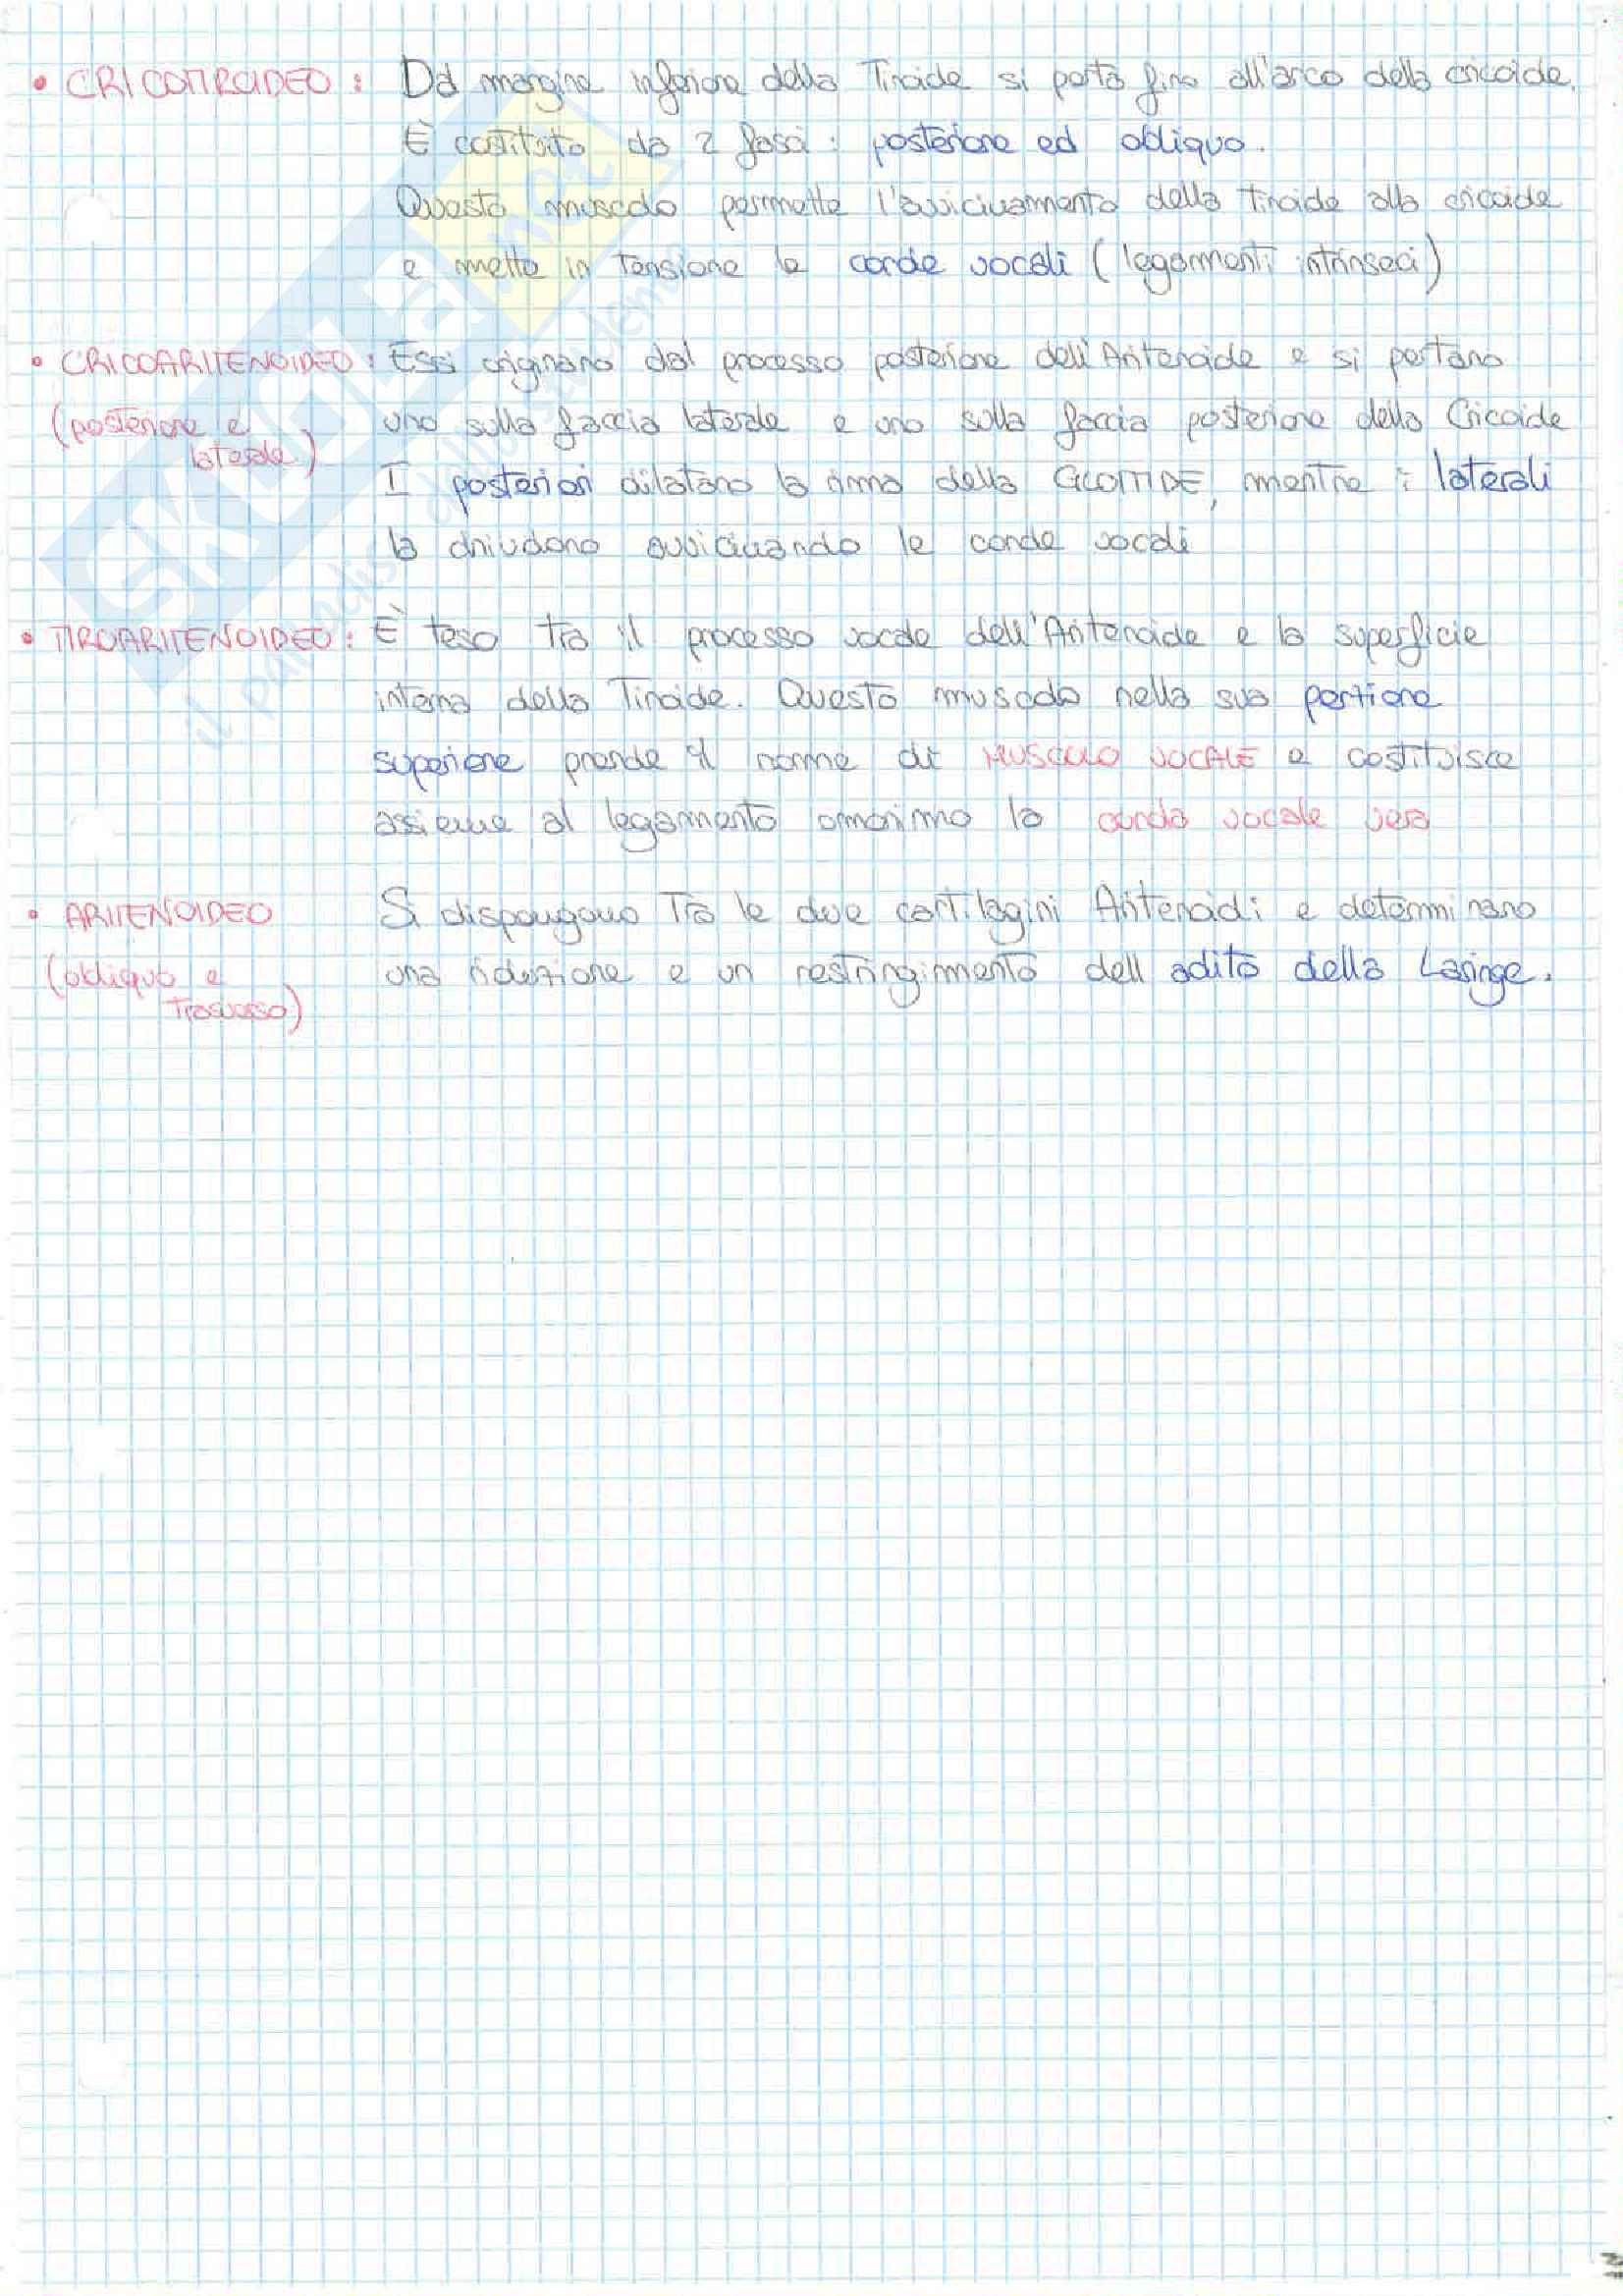 • CRICOTIROIDEO : Dal margine inferiore della Tiroide si porta fino all'arco della cricoide.
È costituito da 2 fasci : posteriore ed obliquo.
Questo muscolo permette l'avvicinamento della Tiroide alla cricoide
e mette in Tensione le corde vocali (legamenti intrinseci)
• CRICOARITENOIDEO : Essi originano dal processo posteriore dell'Aritenoide e si portano
(posteriore e uno sulla faccia laterale e uno sulla faccia posteriore della Cricoide
laterale)
I posteriori dilatano la rima della GLOTTIDE, mentre i laterali
la chiudono avvicinando le corde vocali
• TIROARITENOIDEO : È teso tra il processo vocale dell'Aritenoide e la superficie
interna della Tiroide. Questo muscolo nella sua portione
superiore prende il nome di MUSCOLO VOCALE e costituisce
assieme al legamento omonimo la corda vocale vera
• ARITENOIDEO Si dispongono Tra le due cartilagini Aritenoidi e determinano
(obliquo e una riduzione e un restringimento dell adito della Laringe.
Trasverso)
SKUOLA.net
il paradiso dello studente